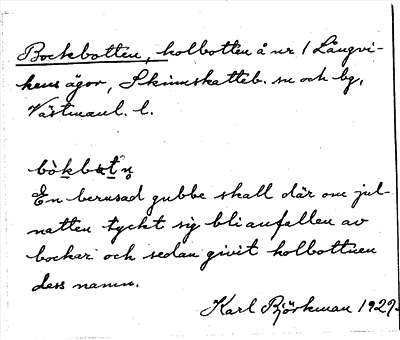 Bockbotten, kolbotten å nr 1 Långvi-
kens ägor, Skinnskatteb. sn och bg,
Västmanl. l.
bòkbåtn
En berusad gubbe skall där om jul-
natten tyckt sig bli anfallen av
bockar och sedan givit kolbottnen
dess namn.
Karl Björkman 1929.